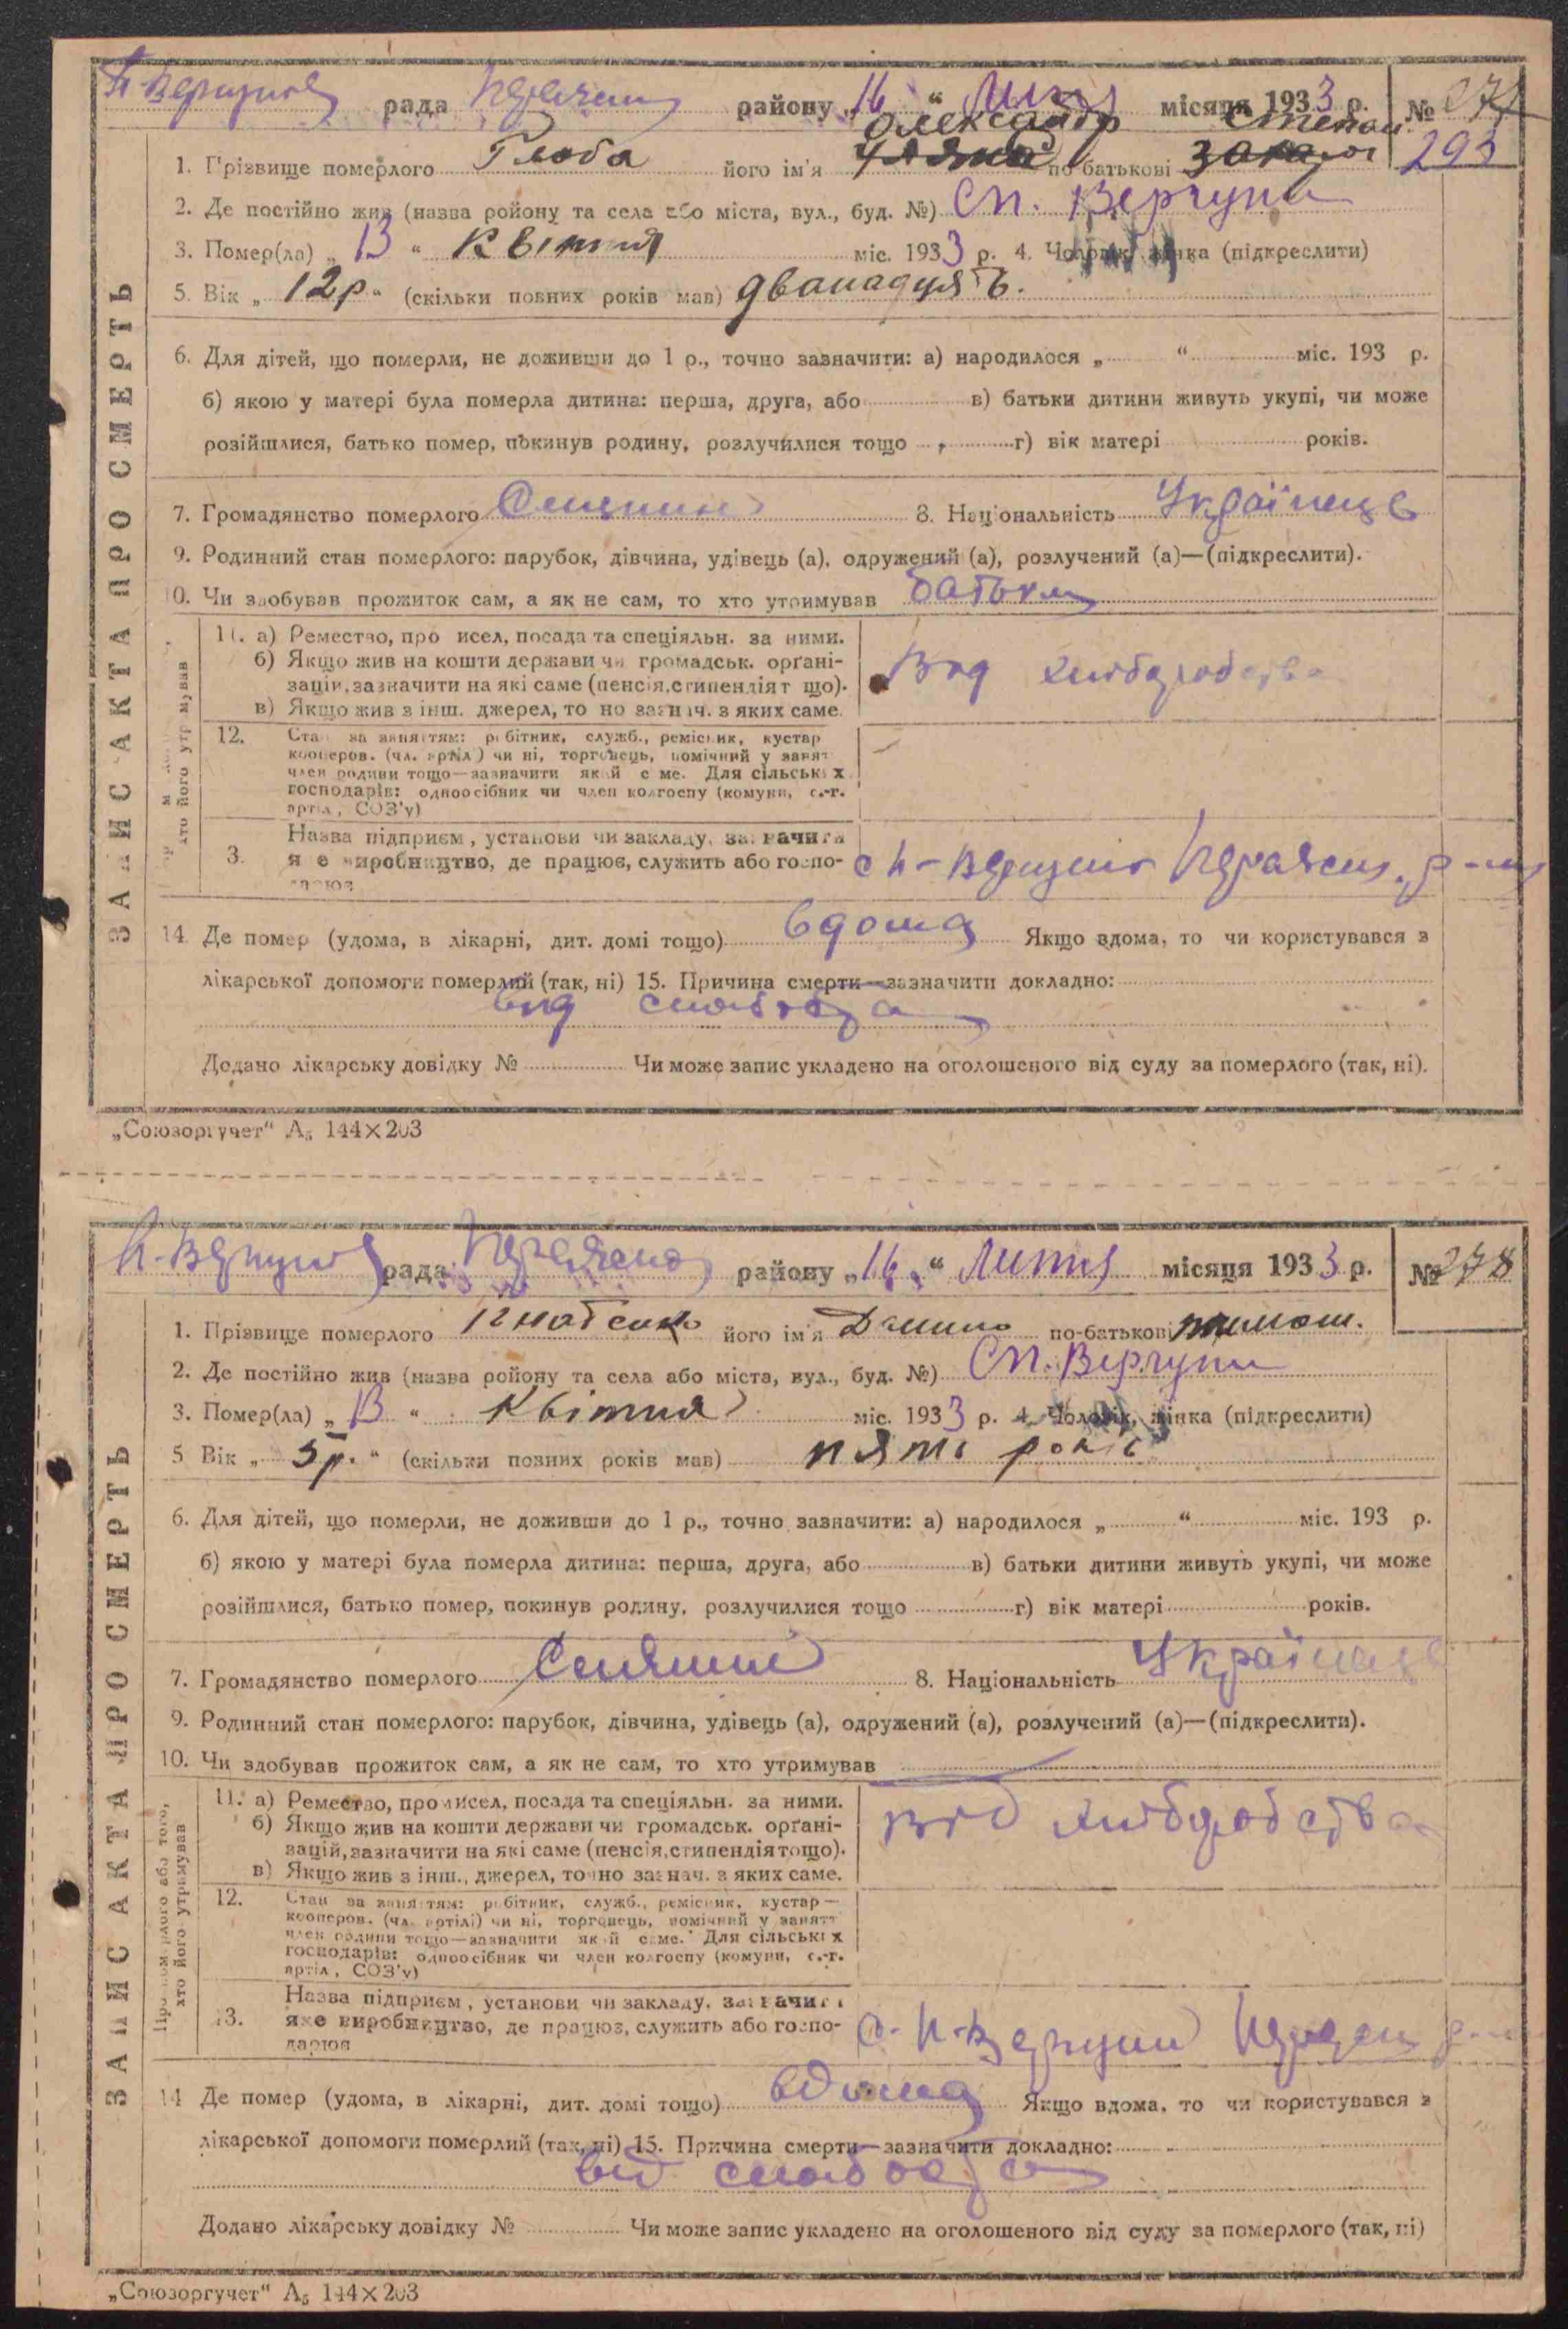 П-Вергунів рада району „16“ Липня місяця 1933 р. №
Олександр Степан. 293
1. Прізвище померлого Глоба його ім'я по-батькові
2. Де постійно жив (назва ройону та села або міста, вул., буд. №) СП. Вергуни
3. Помер(ла) „13“ Квітня міс. 1933 р. 4. Чоловік, жінка (підкреслити)
5. Вік „12р.“ (скільки повних років мав) дванадцять.
6. Для дітей, що померли, не доживши до 1 р., точно зазначити: а) народилося „ “ міс. 193 р.
б) якою у матері була померла дитина: перша, друга, або в) батьки дитини живуть укупі, чи може
розійшлися, батько помер, покинув родину, розлучилися тощо г) вік матері років.
7. Громадянство померлого 8. Національність Українець
9. Родинний стан померлого: парубок, дівчина, удівець (а), одружений (а), розлучений (а)—(підкреслити).
10. Чи здобував прожиток сам, а як не сам, то хто утримував батьки
ЗАПИС АКТА ПРО СМЕРТЬ
хто його утримував
11. а) Ремество, промисел, посада та спеціяльн. за ними.
б) Якщо жив на кошти держави чи громадськ. орґані-
зацій, зазначити на які саме (пенсія, стипендія тощо).
в) Якщо жив з інш. джерел, точно зазнач. з яких саме.
Від хліборобства
12. Стан за заняттям: робітник, служб., ремісник, кустар
кооперов. (чл. артілі) чи ні, торговець, помічний у занят
член родини тощо—зазначити який саме. Для сільських
господарів: одноосібник чи член колгоспу (комуни, с.-г.
артіл, СОЗ'у)
13. Назва підприєм, установи чи закладу, зазначити
яке виробництво, де працює, служить або госпо-
дарює
14. Де помер (удома, в лікарні, дит. домі тощо) вдома Якщо вдома, то чи користувався з
лікарської допомоги померлий (так, ні) 15. Причина смерти—зазначити докладно:
від
Додано лікарську довідку № Чи може запис укладено на оголошеного від суду за померлого (так, ні).
„Союзоргучет“ А₅ 144×203
П-Вергунів рада району „16“ Липня місяця 1933 р. № 278
1. Прізвище померлого Ігнатенко його ім'я Данило по-батькові Тимош.
2. Де постійно жив (назва ройону та села або міста, вул., буд. №) СП. Вергуни
3. Помер(ла) „13“ Квітня міс. 1933 р. 4. Чоловік, жінка (підкреслити)
5 Вік „5р.“ (скільки повних років мав) пять років
6. Для дітей, що померли, не доживши до 1 р., точно зазначити: а) народилося „ “ міс. 193 р.
б) якою у матері була померла дитина: перша, друга, або в) батьки дитини живуть укупі, чи може
розійшлися, батько помер, покинув родину, розлучилися тощо г) вік матері років.
7. Громадянство померлого 8. Національність Українець
9. Родинний стан померлого: парубок, дівчина, удівець (а), одружений (а), розлучений (а)—(підкреслити).
10. Чи здобував прожиток сам, а як не сам, то хто утримував
ЗАПИС АКТА ПРО СМЕРТЬ
Про померлого або того,
хто його утримував
11. а) Ремество, промисел, посада та спеціяльн. за ними.
б) Якщо жив на кошти держави чи громадськ. орґані-
зацій, зазначити на які саме (пенсія, стипендія тощо).
в) Якщо жив з інш., джерел, точно зазнач. з яких саме.
Від хліборобства
12. Стан за заняттям: робітник, служб., ремісник, кустар—
кооперов. (чл. артілі) чи ні, торговець, помічний у занятт
член родини тощо—зазначити який саме. Для сільських
господарів: одноосібник чи член колгоспу (комуни, с.-г.
артіл, СОЗ'у)
13. Назва підприєм, установи чи закладу, зазначити
яке виробництво, де працює, служить або госпо-
дарює
14 Де помер (удома, в лікарні, дит. домі тощо) вдома Якщо вдома, то чи користувався з
лікарської допомоги померлий (так, ні) 15. Причина смерти—зазначити докладно:
від
Додано лікарську довідку № Чи може запис укладено на оголошеного від суду за померлого (так, ні)
„Союзоргучет“ А₅ 144×203